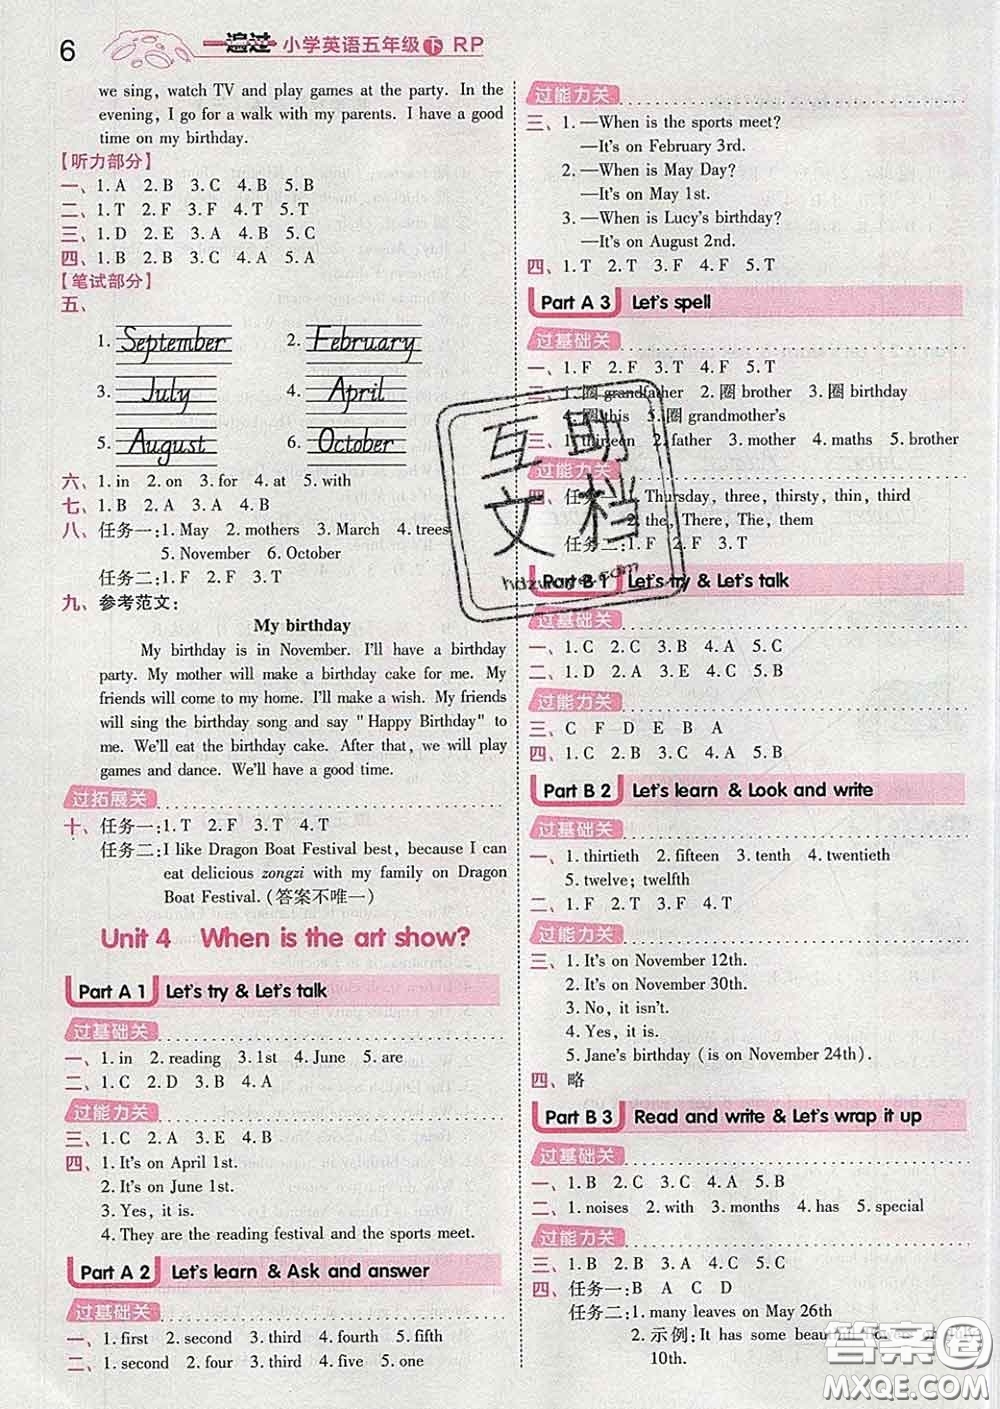 6 一遍过 小学英语五年级 下 RP
we sing, watch TV and play games at the party. In the
evening, I go for a walk with my parents. I have a good
time on my birthday.
【听力部分】
一、1. A 2. B 3. C 4. B 5. B
二、1. T 2. F 3. F 4. T 5. T
三、1. D 2. E 3. A 4. B 5. C
四、1. B 2. A 3. C 4. B 5. A
【笔试部分】
五、
1. September 2. February
3. July 4. April
5. August 6. October
六、1. in 2. on 3. for 4. at 5. with
七、1. B 2. A 3. A 4. B
八、任务一:1. May 2. mothers 3. March 4. trees
5. November 6. October
任务二:1. F 2. T 3. T 4. F
九、参考范文:
My birthday
My birthday is in November. I'll have a birthday
party. My mother will make a birthday cake for me. My
friends will come to my home. I'll make a wish. My friends
will sing the birthday song and say "Happy Birthday" to
me. We'll eat the birthday cake. After that, we will play
games and dance. We'll have a good time.
过拓展关
十、任务一:1. T 2. F 3. T 4. T
任务二:I like Dragon Boat Festival best, because I can
eat delicious zongzi with my family on Dragon
Boat Festival. (答案不唯一)
Unit 4 When is the art show?
Part A 1 Let's try & Let's talk
过基础关
一、1. in 2. reading 3. 1st 4. June 5. are
二、1. C 2. D 3. B 4. A
过能力关
三、1. C 2. A 3. E 4. B
四、1. It's on April 1st.
2. It's on June 1st.
3. Yes, it is.
4. They are the reading festival and the sports meet.
Part A 2 Let's learn & Ask and answer
过基础关
一、1. first 2. second 3. third 4. fourth 5. fifth
二、1. second 2. four 3. third 4. five 5. one
过能力关
三、1. —When is the sports meet?
—It's on February 3rd.
2. —When is May Day?
—It's on May 1st.
3. —When is Lucy's birthday?
—It's on August 2nd.
四、1. T 2. T 3. F 4. F 5. T
Part A 3 Let's spell
过基础关
一、1. F 2. F 3. T 4. F 5. T
二、1. 圈 grandfather 2. 圈 brother 3. 圈 birthday
4. 圈 this 5. 圈 grandmother's
三、1. thirteen 2. father 3. mother 4. maths 5. brother
过能力关
四、任务一:1. Thursday, three, thirsty, thin, third
2. the, There, The, them
任务二:1. F 2. F 3. T
Part B 1 Let's try & Let's talk
过基础关
一、1. C 2. C 3. B 4. A 5. C
二、1. D 2. A 3. E 4. C 5. B
过能力关
三、C F D E B A
四、1. C 2. B 3. C 4. A 5. B
Part B 2 Let's learn & Look and write
过基础关
一、1. thirtieth 2. fifteen 3. tenth 4. twentieth
5. twelve; twelfth
二、1. F 2. F 3. T 4. T
过能力关
三、1. It's on November 12th.
2. It's on November 30th.
3. No, it isn't.
4. Yes, it is.
5. Jane's birthday (is on November 24th).
四、略
Part B 3 Read and write & Let's wrap it up
过基础关
一、1. B 2. C 3. C 4. A 5. B
二、1. noises 2. with 3. months 4. has 5. special
过能力关
三、1. B 2. B 3. A 4. B 5. B
四、任务一:B A C D
任务二:1. many leaves on May 26th
2. 示例:It has some beautiful
10th.
互助
文档
答案圈
MXQE.COM